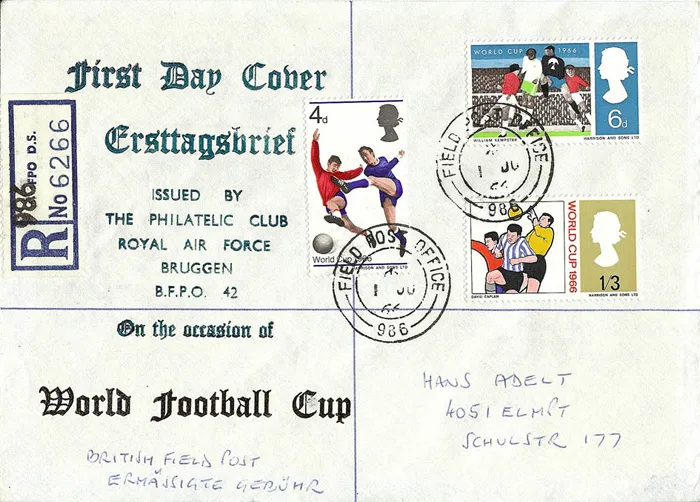 First Day Cover
Ersttagsbrief
ISSUED BY
THE PHILATELIC CLUB
ROYAL AIR FORCE
BRUGGEN
B.F.P.O. 42
On the occasion of
World Football Cup
BRITISH FIELD POST
ERMÄSSIGTE GEBÜHR
R
FPO D.S.
986
No 6266
4d
World Cup 1966
HARRISON AND SONS LTD
FIELD POST OFFICE
1 JU
66
986
WORLD CUP 1966
6d
WILLIAM KEMPSTER
HARRISON AND SONS LTD
FIELD POST OFFICE
1 JU
66
986
WORLD CUP 1966
1/3
DAVID CAPLAN
HARRISON AND SONS LTD
HANS ADELT
4051 ELMPT
SCHULSTR 177